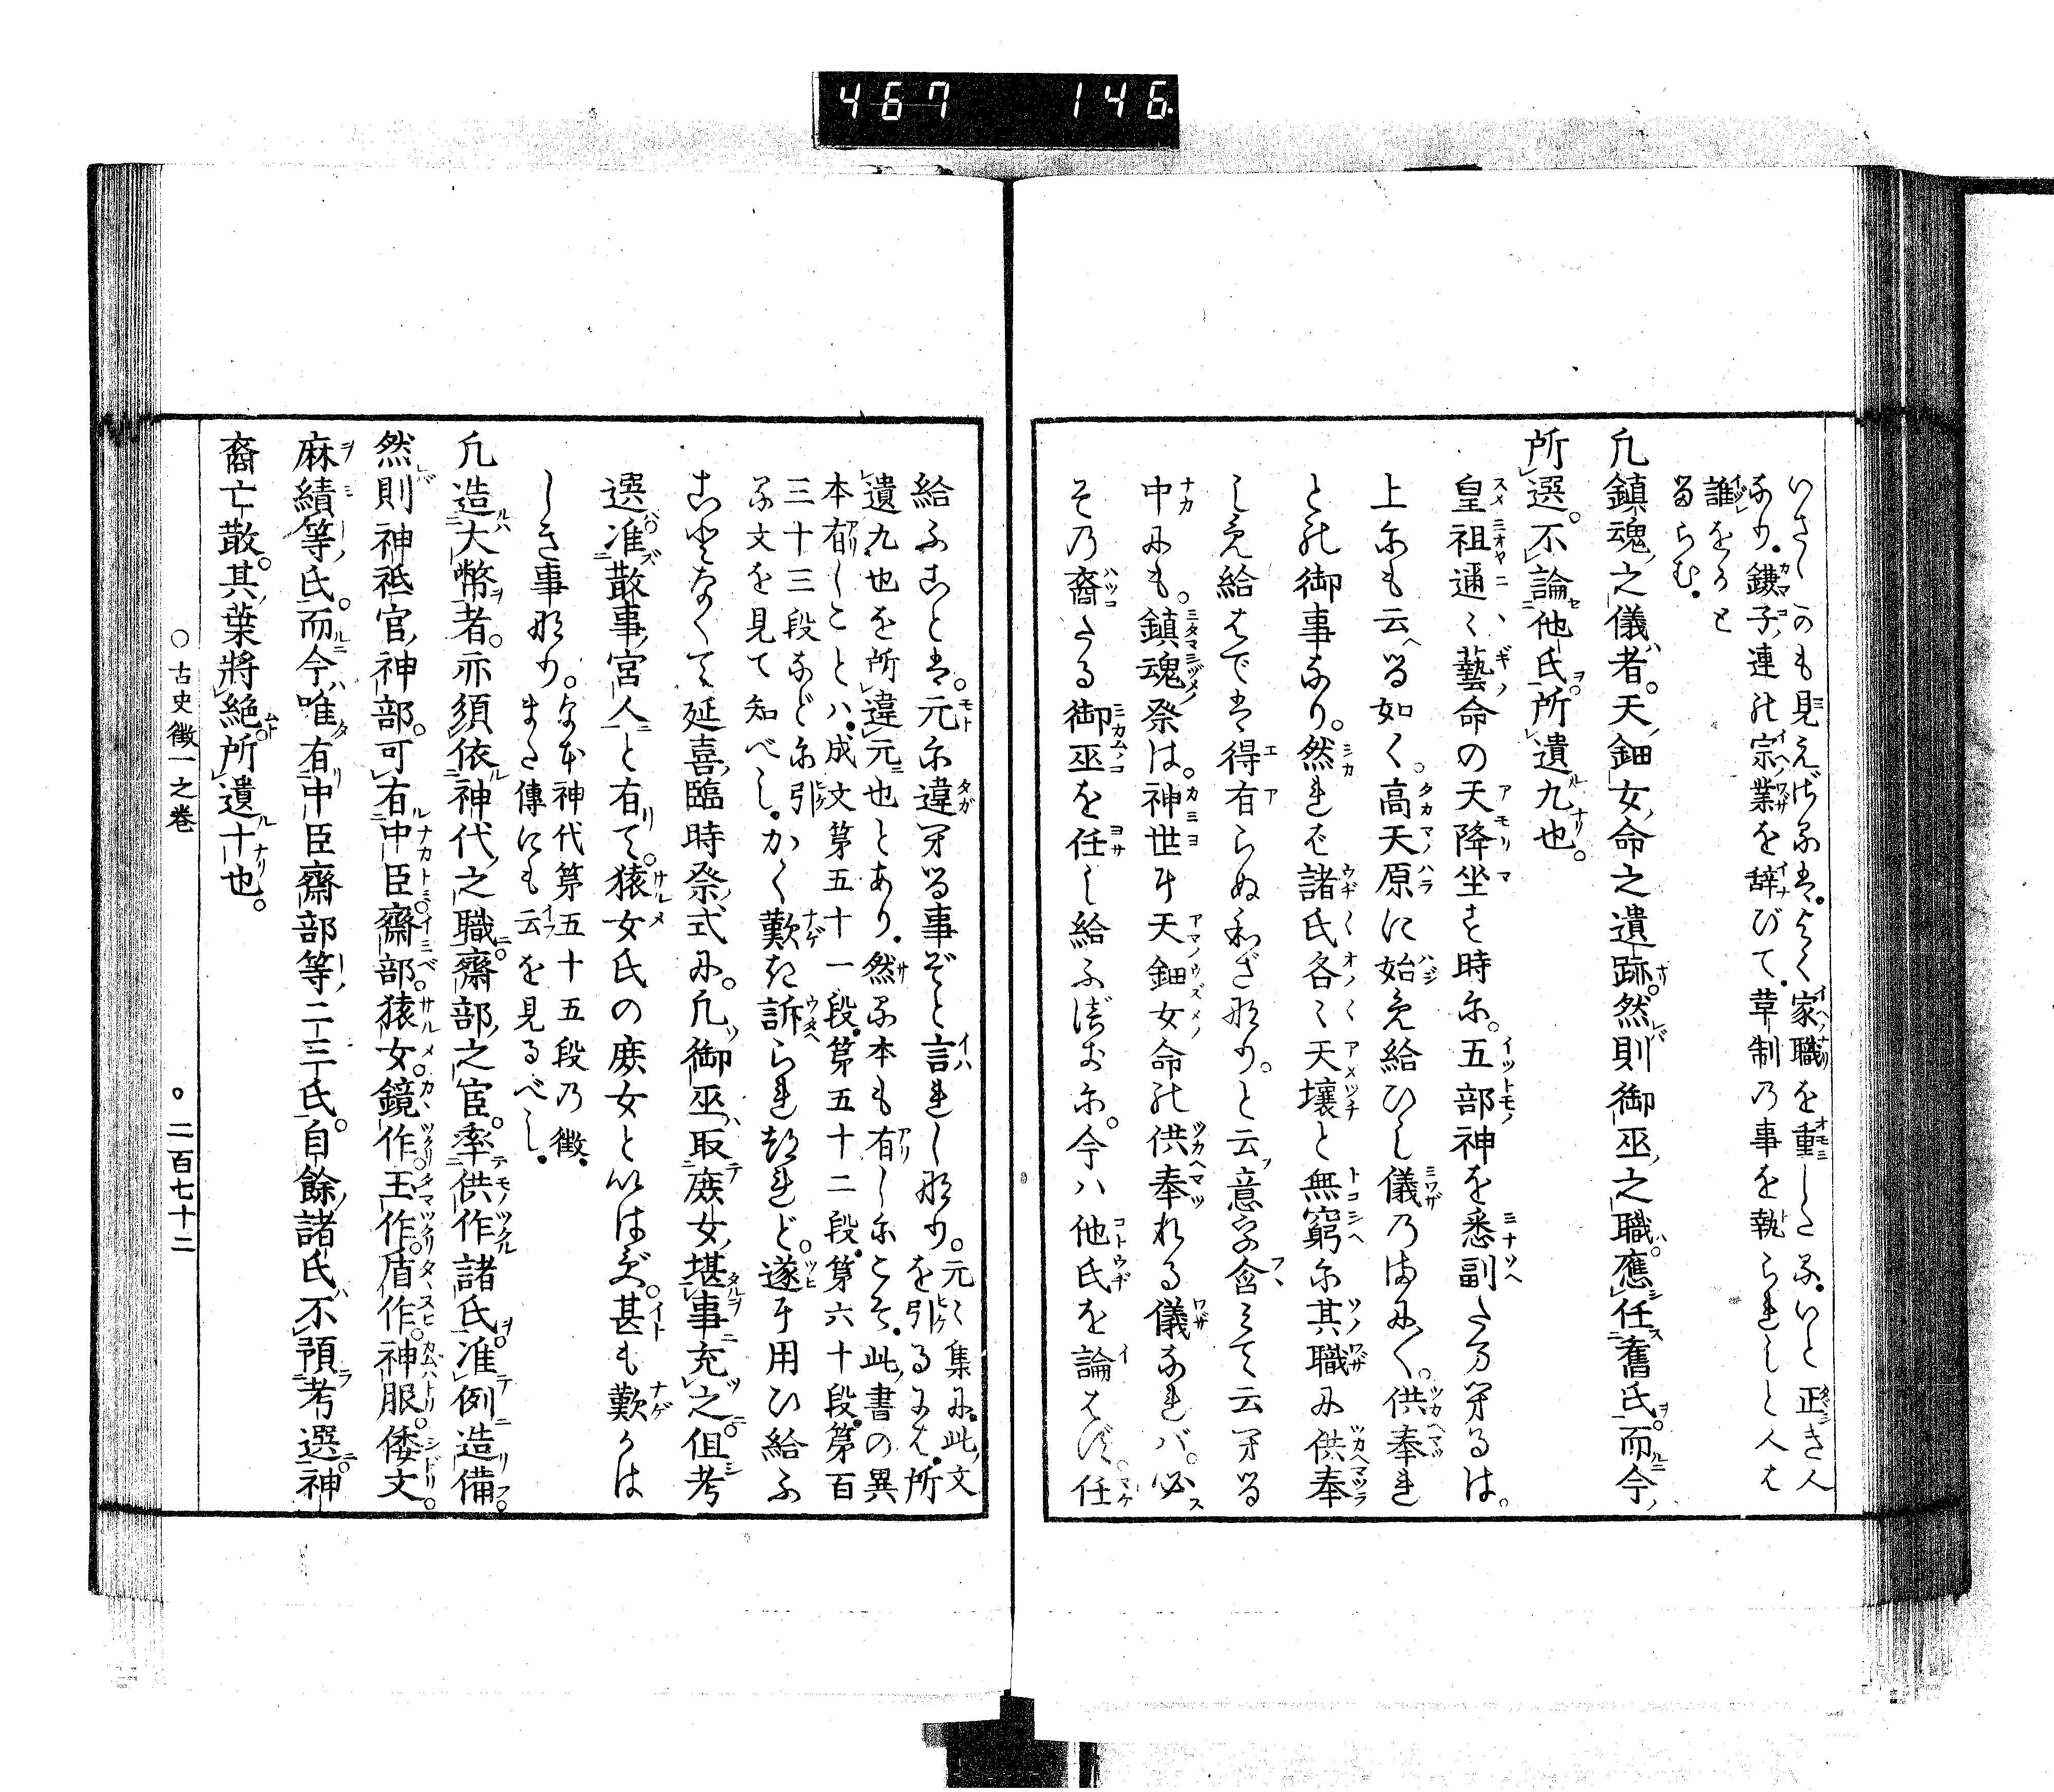 467 146
いさゝかも見えざるは。よく家職を重したる。いと正き人
なり。鎌子連の宗業を辞びて。草制の事を執られしと人は
誰をかも
るらむ。
凡鎮魂之儀者。天鈿女命之遺跡。然則御巫之職。應任舊氏。而今
所選。不論他氏。所遺九也。
皇祖邇々藝命の天降坐す時に。五部神を悉副たまへるは。
上にも云へる如く。高天原に始め給ひし儀のまにまに。供奉れ
との御事なり。然れば諸氏各々天壤と無窮に其職に供奉
しめ給はでは得有らぬわざなり。と云意を含みて云へる
中にも。鎮魂祭は。神世に天鈿女命の供奉れる儀なれバ。必
その裔たる御巫を任し給ふべきに。今ハ他氏を論はず。任
給ふことは。元に違へる事ぞと言れしなり。元々集に。此文を引るには。所
遺九也を所違元也とあり。然る本も有しにこそ。此書の異
本有しことハ。成文第五十一段。第五十二段。第六十段。第百
三十三段などに引る文を見て知べし。かく歎き訴られつれど。遂に用ひ給ふ
ことなくて延喜臨時祭式に。凡御巫取庶女堪事充之。但考
選准散事宮人と有て。猿女氏の庶女と以はず。甚も歎かは
しき事なり。なほ神代第五十五段の徴。
また傳にも云を見るべし。
凡造大幣者。亦須依神代之職。齋部之宦。率供作諸氏。准例造備。
然則神祇官神部。可有中臣齋部。猿女。鏡作。玉作。盾作。神服。倭文。
麻績等氏。而今唯有中臣齋部等二三氏。自餘諸氏。不預考選。神
裔亡散。其葉將絶。所遺十也。
○古史徴一之卷 ○二百七十二